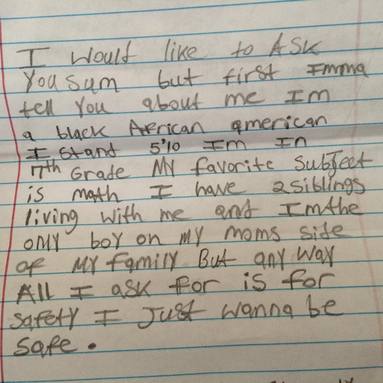 I would like to ASK
You sum but first Imma
tell You about me Im
a black African american
I stand 5'10 Im In
7th Grade MY favorite Subject
is math I have 2siblings
living with me and Imthe
only boy on my moms side
of MY family But any way
All I ask for is for
safety I Just wanna be
safe.